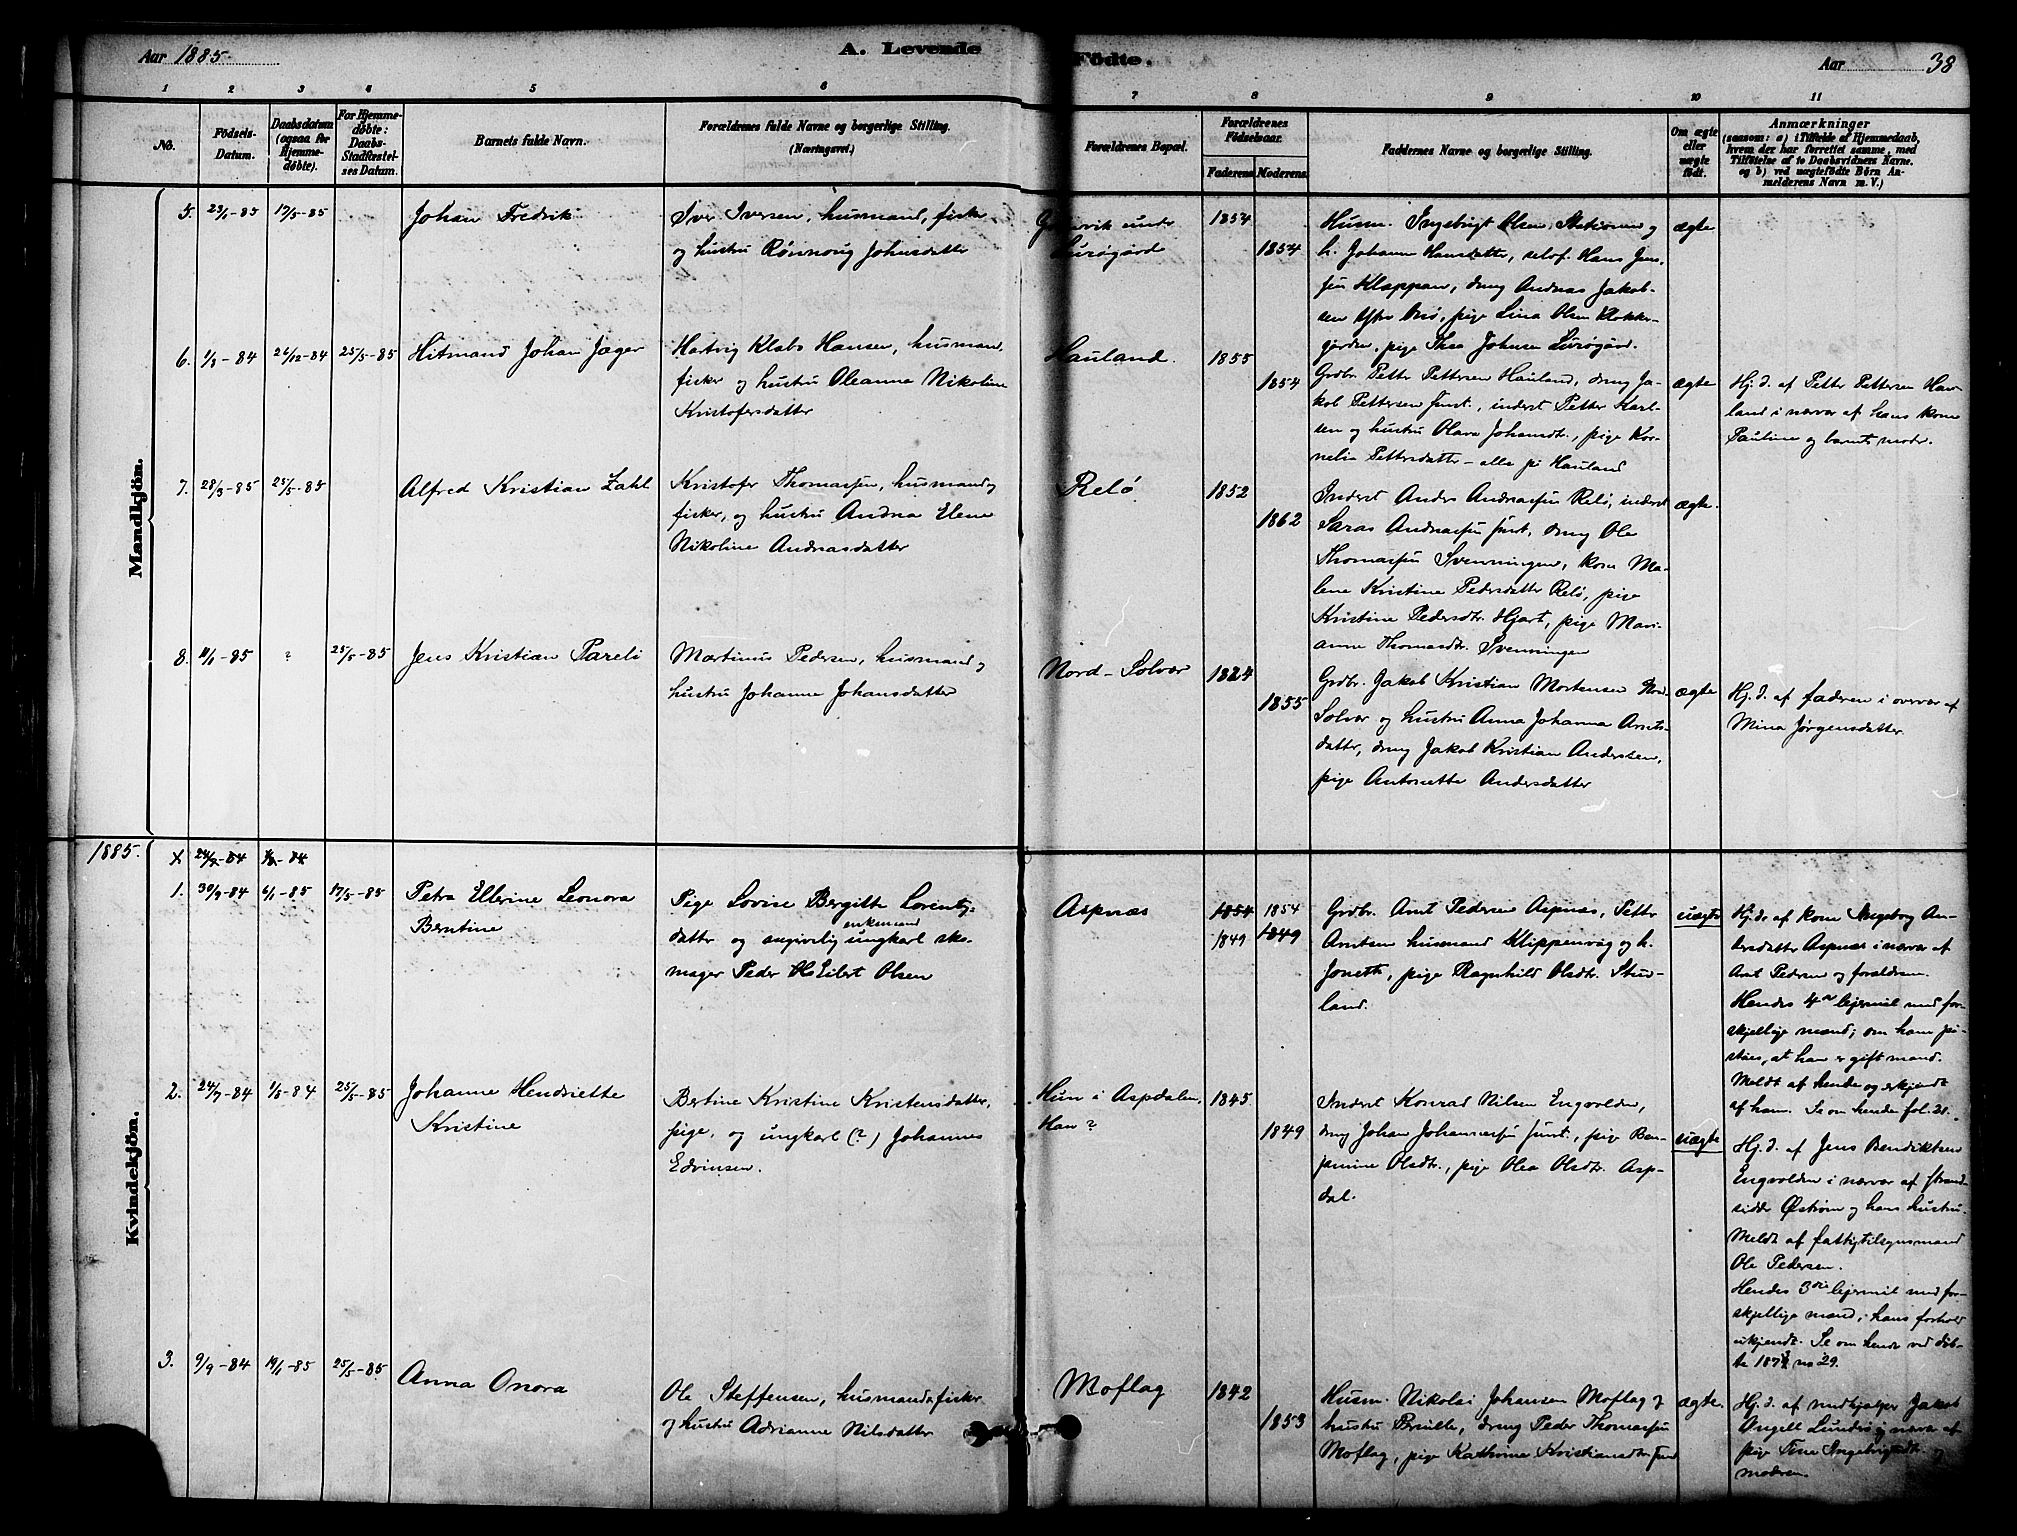 Aar 1885.
A. Levende
Födte.
Aar
38
1 2 3 4 5 6 7 8 9 10 11
No.
Födsels-Datum.
Daabsdatum (ogsaa for Hjemmedøbte).
For Hjemmedøbte: Daabs-Stadfæstelses Datum.
Barnets fulde Navn.
Forældrenes fulde Navne og borgerlige Stilling.
(Næringsvei.)
Forældrenes Bopæl.
Forældrenes Födselsaar.
Faderens Moderens
Faddernes Navne og borgerlige Stilling.
Om ægte eller uægte født.
Anmærkninger
(saasom: a) i Tilfælde af Hjemmedaab,
hvem der har forrettet samme, med
Tilföielse af to Daabsvidners Navne.
og b) ved uægtefödte Börn An-
melderens Navn m. V.)
Mandkjön.
5. 23/1-85 17/5-85
Johan Fredrik
Iver Iversen, husmand, fisker
og hustru Rønnoug Johnsdatter
Lurøgård
1854
1854
Husm. Ingebrigt Olsen Stationen og
h. Johanna Hansdatter, selvf. Hans Jens-
sen Klappan, dreng Andreas Jakob-
sen Onø, pige Lina Olsen Klokker-
gården, pige Thea Johnsen Lurøgård.
ægte
6. 1/3-84 26/12-84 25/5-85
Hitmand Johan Jæger
Hartvig Klabo Hansen, husmand,
fisker og hustru Oleanna Nikoline
Kristofersdatter
Hauland.
1855
1854
Grdbr. Petter Pettersen Hauland, dreng Ja-
kob Pettersen smst., inderst Petter Karl-
sen og hustru Olava Johansdt., pige Kor-
nelia Pettersdatter - alle på Hauland
ægte
Hj.d. af Petter Pettersen Hau-
land i nærvær af hans kone
Pauline og barnets moder.
7. 28/3-85 25/5-85
Alfred Kristian Zahl
Kristofer Thomassen, husmand og
fisker, og hustru Andrea Elene
Nikoline Andreasdatter
Relø
1852
1862
Inderst Anders Andreassen Relø, inderst
Saras Andreassen smst., dreng Ole
Thomassen Svenningen, kone Ma-
lene Kristine Pedersdatter Relø, pige
Kristine Pedersdtr. Hjart, pige Mari-
anne Thomasdtr. Svenningen
ægte.
8. 11/1-85 ? 25/5-85
Jens Kristian Pareli
Martinus Pedersen, husmand og
hustru Johanna Johansdatter
Nord-Solvær
1824
1855
Grdbr. Jakob Kristian Mortensen Nord-
Solvær og hustru Anna Johanna Arnts-
datter, dreng Jakob Kristian Anderssen,
pige Antonette Andersdatter
ægte
Hj.d. af faderen i overvær af
Mina Jørgensdatter.
1885.
Kvindekjön.
X. 24/7-84 1/8-84
1. 30/9-84 6/1-85 17/5-85
Petra Ellerine Leonora
Berntine
Pige Lovise Bergitte Lorents-
datter og angivelig ungkarl enkemand sko-
mager Peder Ole Eilert Olsen
Aspnæs
1854 1854
1849 1849
Grdbr. Arnt Pedersen Aspnæs, Petter
Arntsen husmand Klippenvåg og h.
Jonetta, pige Ragnhild Olsdtr. Stuv-
land.
uægte
Hj.d. af kone Ingeborg An-
dersdatter Aspnæs i nærvær af
Arnt Pedersen og forældrene.
Hendes 4de leiermål med for-
skjellige mænd; om ham på-
stås, at han er gift mand.
Meldt af hende og erkjendt
af ham. Se om hende fol. 21.
2. 24/7-84 1/8-84 25/5-85
Johanne Hendriette
Kristine
Bertine Kristine Kristensdatter,
pige, og ungkarl (?) Johannes
Edvinsen.
Hun i Aspdalen,
Han ?
1845.
1849
Inderst Konrad Nilsen Engvolden,
dreng Johan Johannessen smst., pige Ben-
jamine Olsdtr., pige Olea Olsdtr. Asp-
dal.
uægte
Hj.d. af Jens Bendiktsen
Engvolden i nærvær af strand-
sidder Østrøm og hans hustru.
Meldt af fattigtilsynsmand
Ole Pedersen.
Hendes 3die leiermål med for-
skjellige mænd; hans forhold
ukjendt. Se om hende ved døb-
te 1874 no 29.
3. 9/9-84 19/1-85 25/5-85
Anna Onora
Ole Steffensen, husmand & fisker
og hustru Adrianne Nilsdatter
Moflag
1842
1853
Husm. Nikolai Johansen Moflag og
hustru Brille, dreng Peder Thomassen
Moflag, pige Kathrine Kristiansdtr smst
ægte.
Hj.d. af nødhjælper Jakob
Angell Lundø i nærvær af
pige Tine Ingebrigtsdtr. og
moderen.